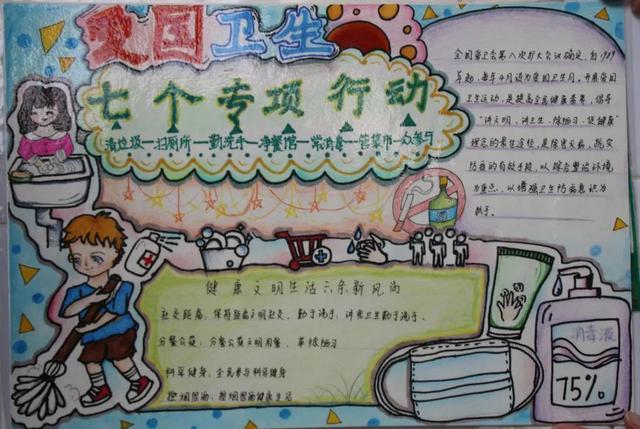 爱国卫生
七个专项行动
清垃圾—扫厕所—勤洗手—净餐馆—常消毒—管菜市—众参与
全国爱卫会第八次扩大会议确定，自1989
年起，每年4月设为爱国卫生月，开展爱国
卫生运动，是提高全民健康素养，倡导
“讲文明、讲卫生、除陋习、促健康”
理念的最佳途径，是除害灭病，防灾
防疫的有效手段，以综合整治环境
为重点，以增强卫生防病意识为
抓手。
健康文明生活六条新风尚
社交距离，保持距离文明社交。勤于洗手，讲究卫生勤于洗手。
分餐公筷：分餐公筷文明用餐，革除陋习
科学健身，全民参与科学健身
控烟限酒，控烟限酒健康生活
消毒液
75%